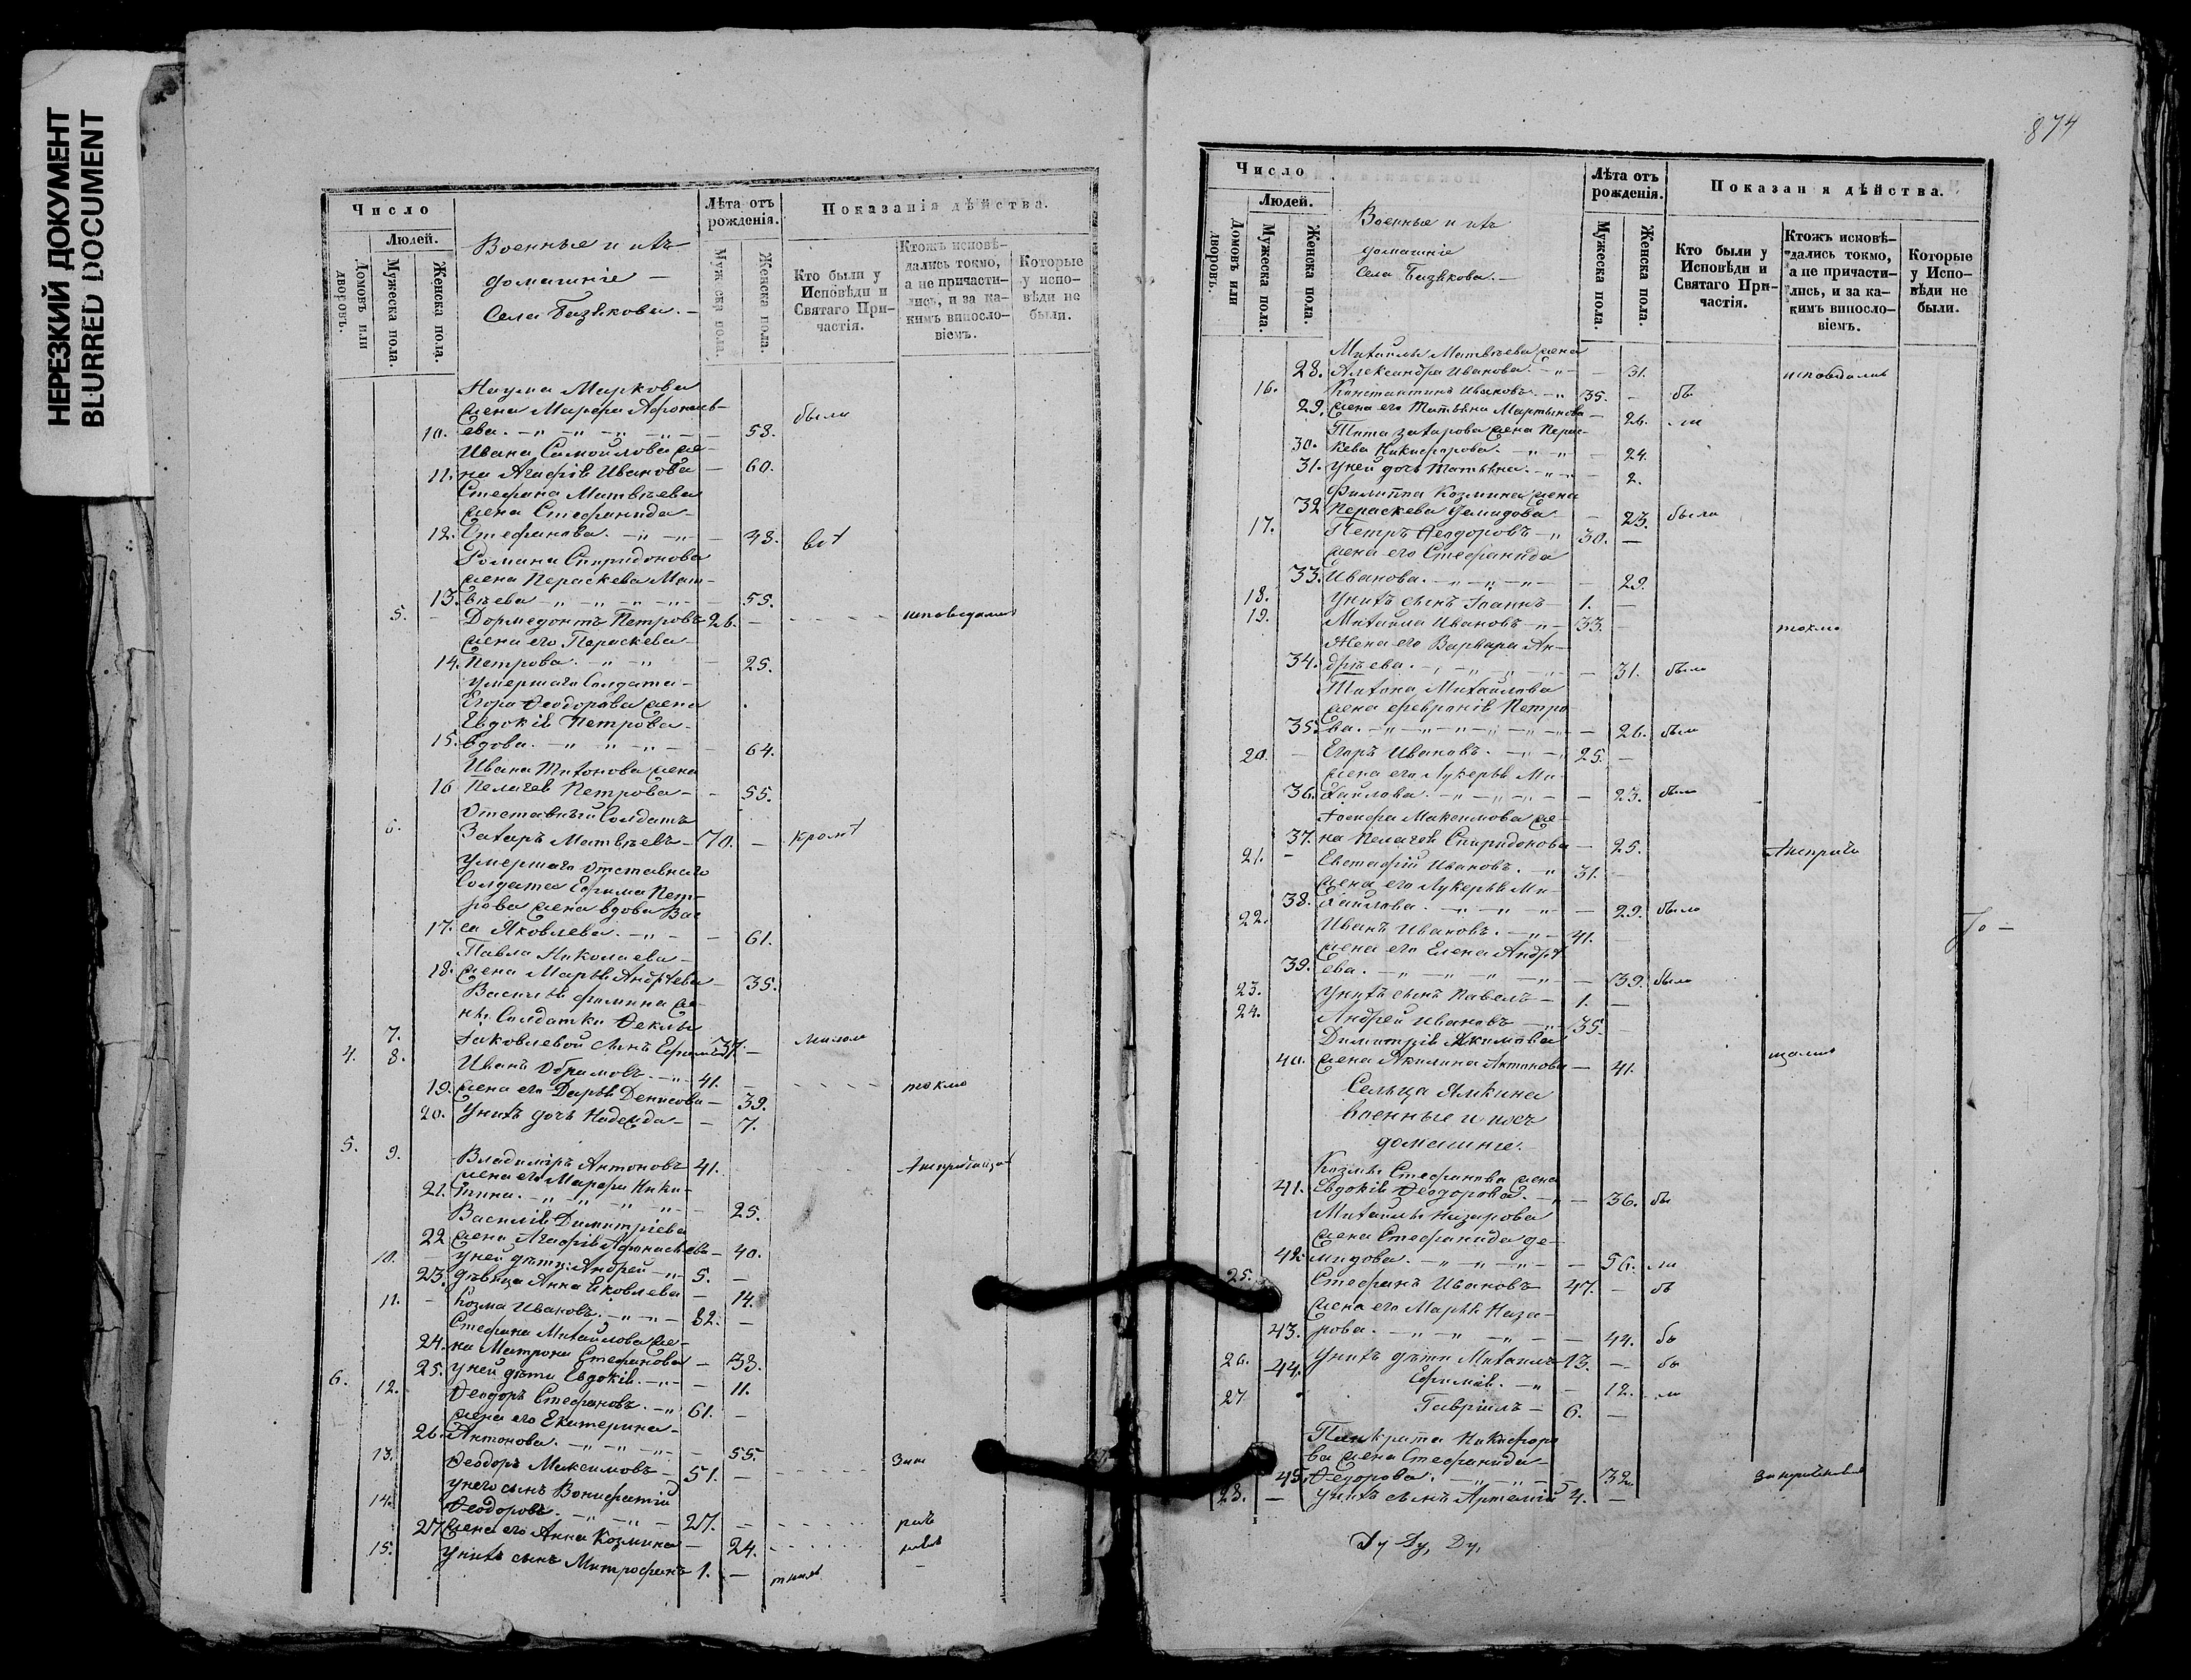 НЕРЕЗКИЙ ДОКУМЕНТ
BLURRED DOCUMENT
Число
Людей.
Домовъ или дворовъ.
Мужеска пола
Женска пола.
Военные и ихъ
домашніе —
Села Базѣкова. —
Лѣта отъ рожденія.
Мужеска пола.
Женска пола.
Показанія дѣйства.
Кто были у Исповѣди и Святаго Причастія.
Ктожъ исповѣдались токмо, а не причастились, и за какимъ винословіемъ.
Которые у исповѣди не были.
Наума Маркова
жена Марфа Афонась-
10. ева. — 58. были
Ивана Самойлова же-
11. на Агафія Иванова — 60.
Стефана Матвѣева
жена Стефанида —
12. Стефанова. — 48.
Романа Спиридонова
жена Параскева Мат-
13. вѣева — 55.
5. — Дормедонтъ Петровъ 26. — исповедались
жена его Параскева —
14. Петрова. — 25.
умершаго Солдата —
Егора Ѳеодорова жена
Евдокія Петрова —
15. вдова. — 64.
Ивана Тихонова жена
16 Пелагея Петрова — 55.
Отставный Солдатъ
6. Захаръ Матвѣевъ — 70. —
умершаго отставнаго
Солдата Ефима Пет-
рова жена вдова Вас
17. са Яковлева. — 61.
Павла Николаева —
18. жена Марья Андреева — 35.
Василья Фомина же-
ны Солдатки Ѳеклы
7. Іаковлевой сынъ Ефимъ 37. —
4. 8. Иванъ Абрамовъ. — 41. — токмо
19. жена его Дарья Денисова — 39.
20. У нихъ дочь Надежда — 7.
5. 9. Владиміръ Антоновъ 41.
жена его Марфа Ники-
21. тина. — 25.
Василія Димитріева
22 жена Агафія Афанасьева — 40.
10. У ней дѣти: Андрей — 5. —
23. дѣвица Анна Яковлева — 14.
11. — Козма Ивановъ. — 32. —
Стефана Михайлова же-
24. на Матрона Стефанова — 38.
25. у ней дѣти Евдокія. — 11.
6. 12. Ѳеодоръ Стефановъ. — 61. —
жена его Екатерина —
26. Антонова. — 55.
13. Ѳеодоръ Максимовъ — 51. —
у него сынъ Вонифатій
14. Ѳеодоровъ. — 27. —
27 жена его Анна Козмина — 24.
15. У нихъ сынъ Митрофанъ 1. —
874
Число
Людей.
Домовъ или дворовъ.
Мужеска пола.
Женска пола.
Военные и ихъ
домашніе
Села Базѣкова. —
Лѣта отъ рожденія.
Мужеска пола.
Женска пола.
Показан я дѣйства.
Кто были у Исповѣди и Святаго Причастія.
Ктожъ исповѣдались токмо, а не причастились, и за какимъ винословіемъ.
Которые у Исповѣди не были.
Михайлы Матвѣева жена
28. Александра Иванова. — 31. исповедались
16. Константинъ Ивановъ. — 35. — бы
29. жена его Татьяна Мартынова — 26. ли
Тита Захарова жена Парас-
30. кева Никифорова. — 24.
31. У ней дочь Татьяна. — 2.
Филиппа Козмина жена
32 Параскева Демидова — 23. была
17. Петръ Ѳеодоровъ — 30. —
жена его Стефанида
33. Иванова. — 29.
18. У нихъ сынъ Іоаннъ — 1. —
19. Михайла Ивановъ — 33. — токмо
Жена его Варвара Ан-
34. дрѣева. — 31. была
Тихона Михайлова
жена Февронія Петро
35. ва. — 26. была
20. — Егоръ Ивановъ. — 25. —
жена его Лукерья Ми-
36. хайлова. — 23. была
Іосифа Максимова же-
37. на Пелагея Спиридонова — 25.
21. — Евстафій Ивановъ. — 31. —
жена его Лукерья Ми-
38. хайлова. — 29. была
22. Иванъ Ивановъ. — 41. —
жена его Елена Андре
39. ева. — 39. была
23. У нихъ сынъ Павелъ — 1. —
24. Андрей Ивановъ — 35. —
Димитрія Якимова
40. жена Акилина Антонова — 41.
Сельца Ямкина
военные и ихъ
домашніе. —
Козмы Стефанова жена
41. Евдокія Ѳеодорова. — 36. бы
Михайлы Назарова
жена Стефанида Де-
42. мидова. — 56. ли
25. Стефанъ Ивановъ — 47. — бы
жена его Марья Наза-
43. рова. — 44. бы
26. У нихъ дѣти Михаилъ 13. — бы
44. Ефимія. — 12. ли
27 Гавріилъ — 6. —
Панкрата Никифоро
ва жена Стефанида —
45. Ѳедорова. — 32
28. — У нихъ сынъ Артемій 4. —